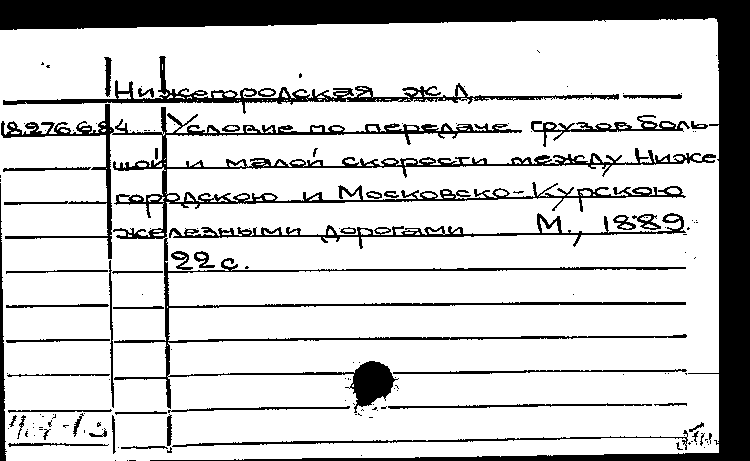 Нижегородская ж.д.
18.276.6.84 Условие по передаче грузов боль-
шой и малой скорости между Ниже
городскою и Московско-Курскою
железными дорогами М., 1889.
22 с.